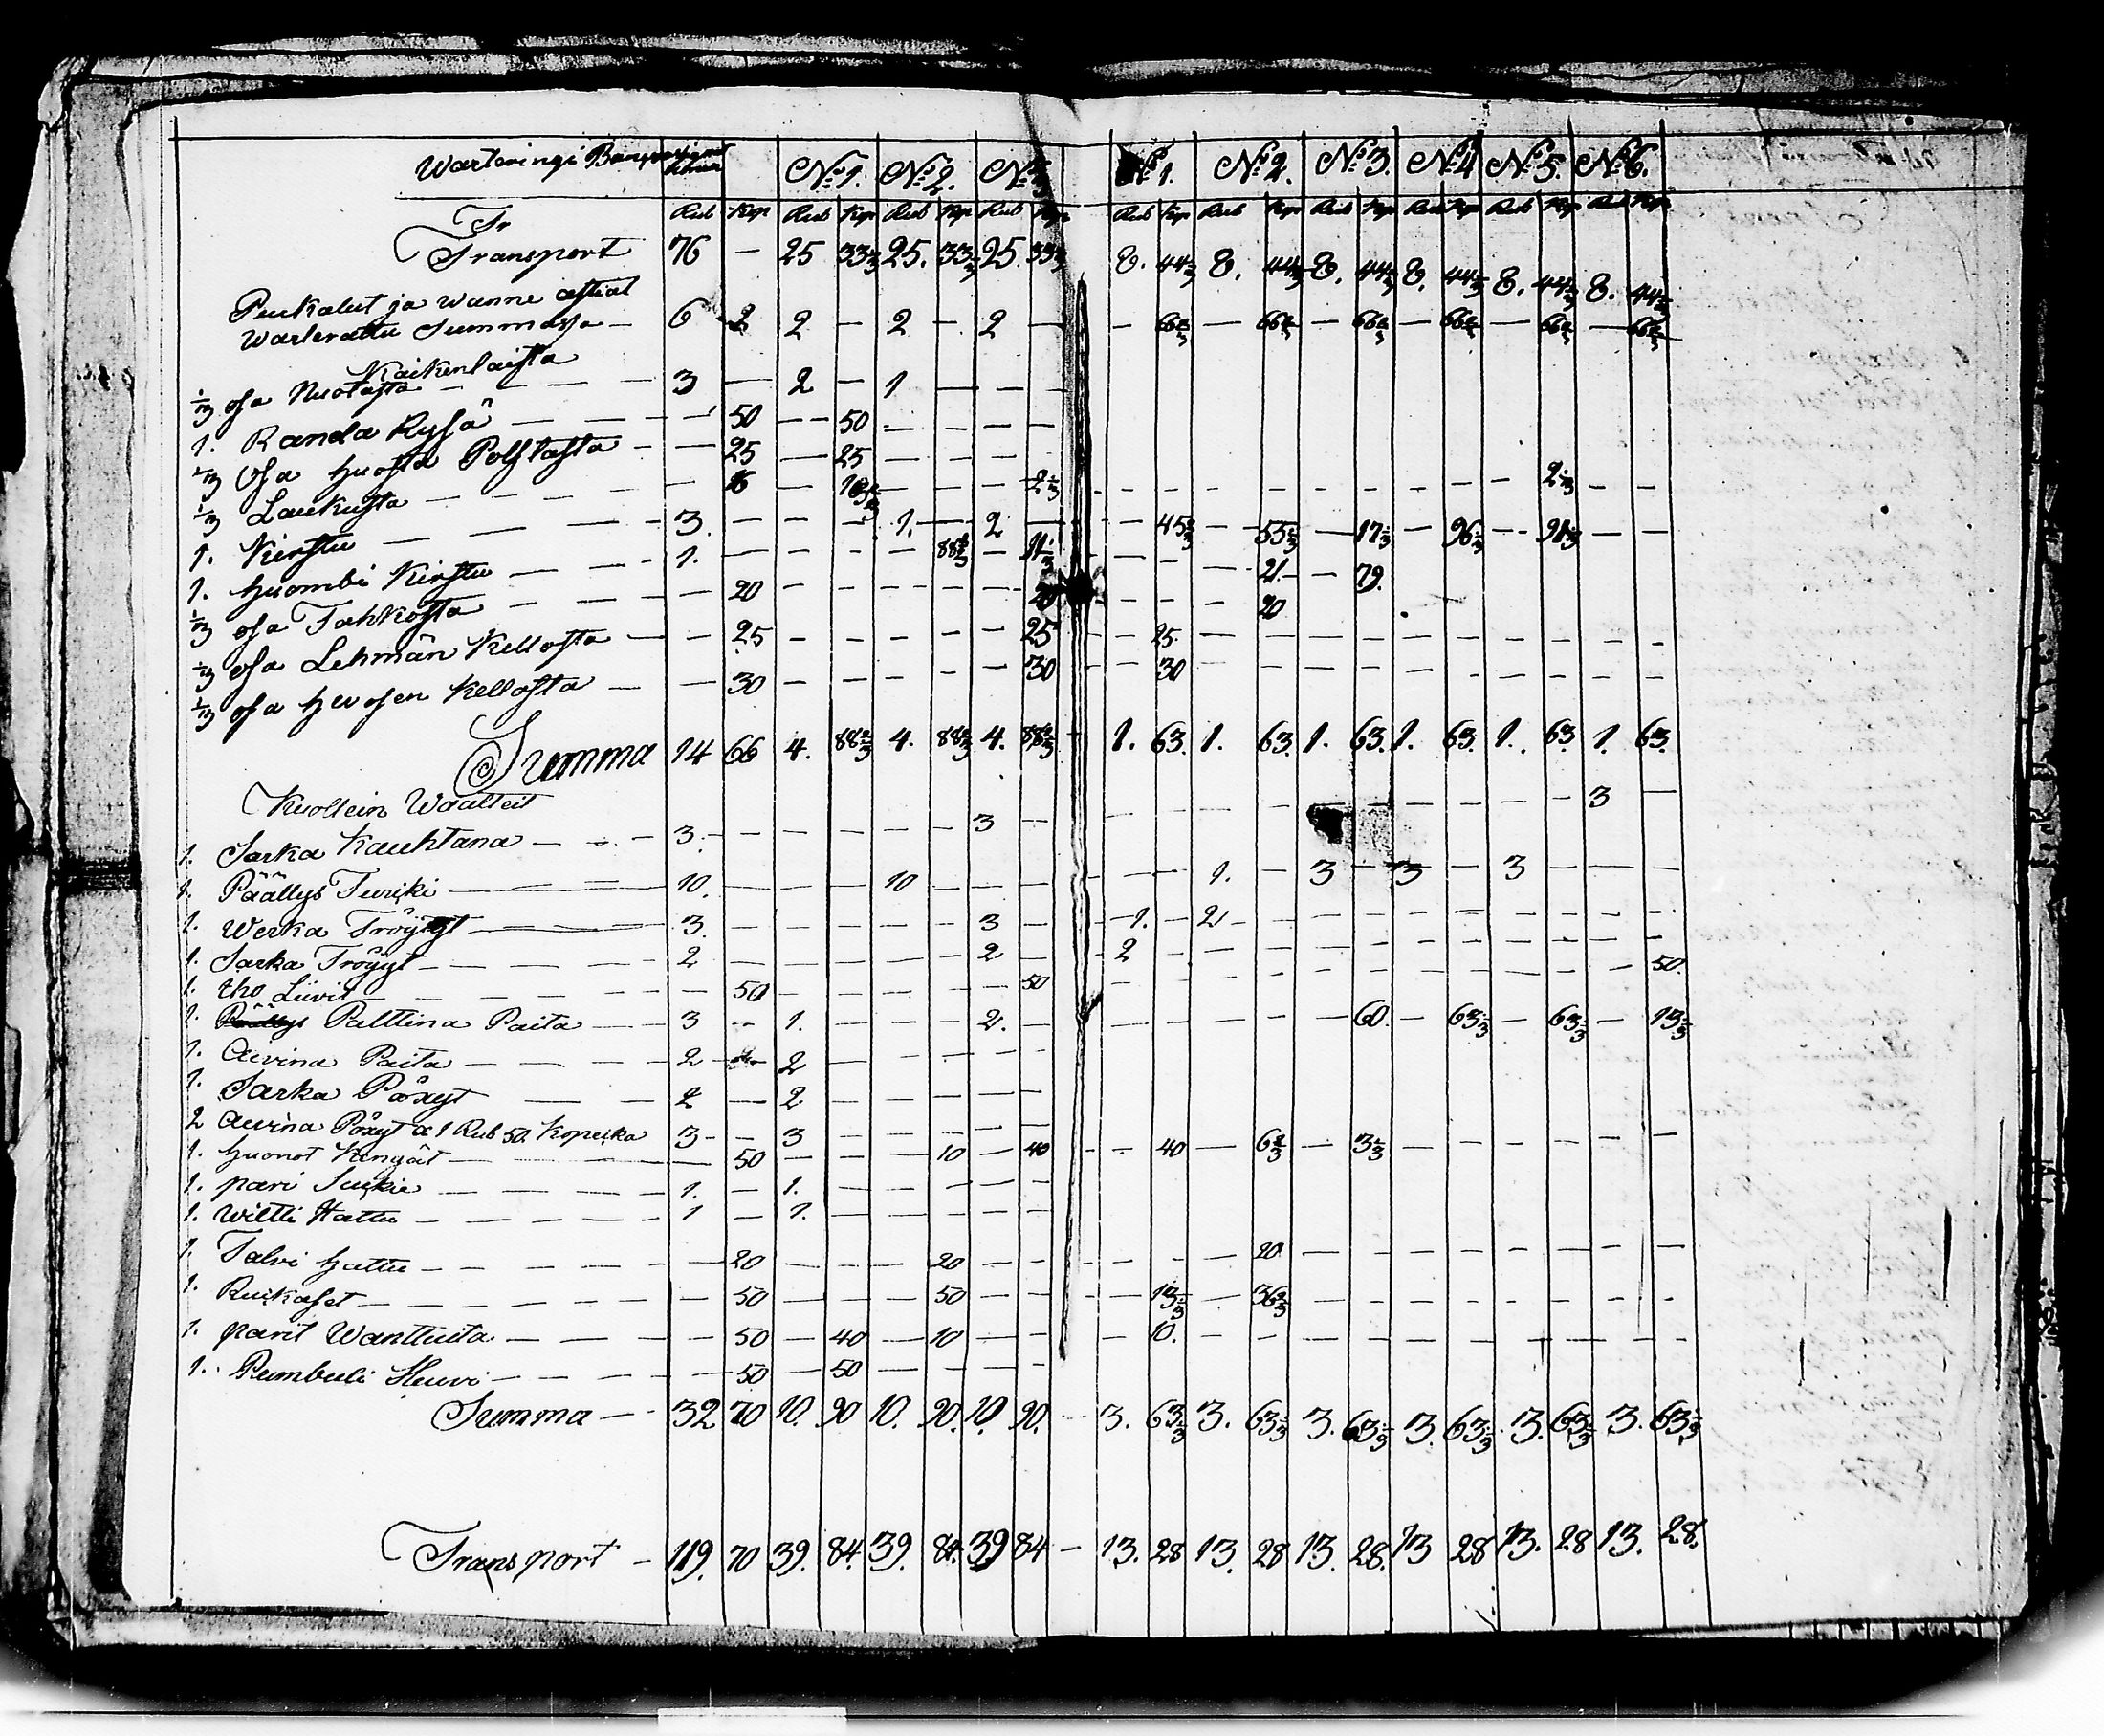 Warteringi № 1. № 2. № 3 № 1. № 2. № 3. № 4 № 5. № 6.
Rub Kop Rub Kop Rub Kop Rub Kop Rub Kop Rub Kop Rub Kop Rub Kop Rub Kop Rub Kop
Tr
Transport 76 — 25 33⅓ 25. 33⅓ 25. 33⅓ 8. 44⅓ 8. 44⅓ 8. 44⅓ 8. 44⅓ 8. 44⅓ 8. 44⅓
Puukalut ja wanne astiat
Warterattu Summassa — 6 2 — 2 — 2 — — 66⅔ — 66⅔ — 66⅔ — 66⅔ — 66⅔ — 66⅔
Kaikenlaista
⅓ osa Nuotasta — 3 — 2 — 1 — — —
1. Randa Rysä — 50 — 50 — — — —
⅓ osa huosta Polstasta — 25 — 25 — — — —
⅓ Laukusta — — 16 — — — — 2⅓ — — — — — — — — — 2⅓ — —
1. Kirstu — 3. — — — 1. — 2 — — 45⅔ — 55⅔ — 17⅓ — 96⅓ — 91⅓ — —
1. huombi Kirstu — 1. — — — — 88⅔ — 11⅓ — — — 21 — 79.
⅓ osa Tahkosta — 20 — — — — — 20 — — — 20
⅓ osa Lehmän Kellosta — 25 — — — — — 25 — 25 — — — — — — — — — —
⅓ osa hevosen Kellosta — 30 — — — — — 30 — 30 — — — — — — — — — —
Summa 14 66 4. 88⅔ 4. 88⅔ 4. 88⅔ 1. 63. 1. 63. 1. 63. 1. 63. 1. 63 1. 63.
Kuollein Waatteit
1. Sarka Kauhtana — 3. — — — — — 3 — — — — — — — — — — — 3 —
1. Päällys Turiki — 10. — — — 10 — — — — — 1. — 3 — 3 — 3 — — —
1. Werka Tröyyt — 3. — — — — — 3 — — 1. — 2 — — — — — — — — —
1. Sarka Tröyyt — 2 — — — — — 2 — 2 — — — — — — — — — — —
1. tho Liivit — — 50 — — — — — 50 — — — — — — — 50.
1. Palttina Paita — 3 — 1. — — — 2. — — — — — — 60. — 63⅓ — 63⅓ — 13⅓
1. Aivina Paita — 2 — 2 — — — — —
1. Sarka Pöxyt — 2 — 2 — — — — —
2 Aivina Pöxyt a 1 Rub 50. Kopeika 3 — 3 — — — — —
1. huonot Kengät — 50 — — — 10 — 40 — — 40 — 6⅔ — 3⅓ — — — — — —
1. pari Sukkia — 1. — 1. — — — — —
1. Wiltti Hattu — 1 — 1. — — — — —
1. Talvi hattu — 20 — — — 20 — — — — — 20 — — — — — — — —
1. Ruikaset — 50 — — — 50 — — — 13⅓ — 36⅔ — — — — — — — —
1. parit Wanttuita — 50 — 40 — 10 — — — 10. — — — — — — — — — —
1. Pumbuli Huwi — 50 — 50 — — — —
Summa — 32 70 10. 90 10. 90. 10. 90. 3. 63⅓ 3. 63⅓ 3. 63⅓ 3. 63⅓ 3. 63⅓ 3. 63⅓
Transport — 119. 70 39. 84. 39. 84. 39 84 — 13. 28 13. 28 13. 28. 13 28 13. 28 13. 28.